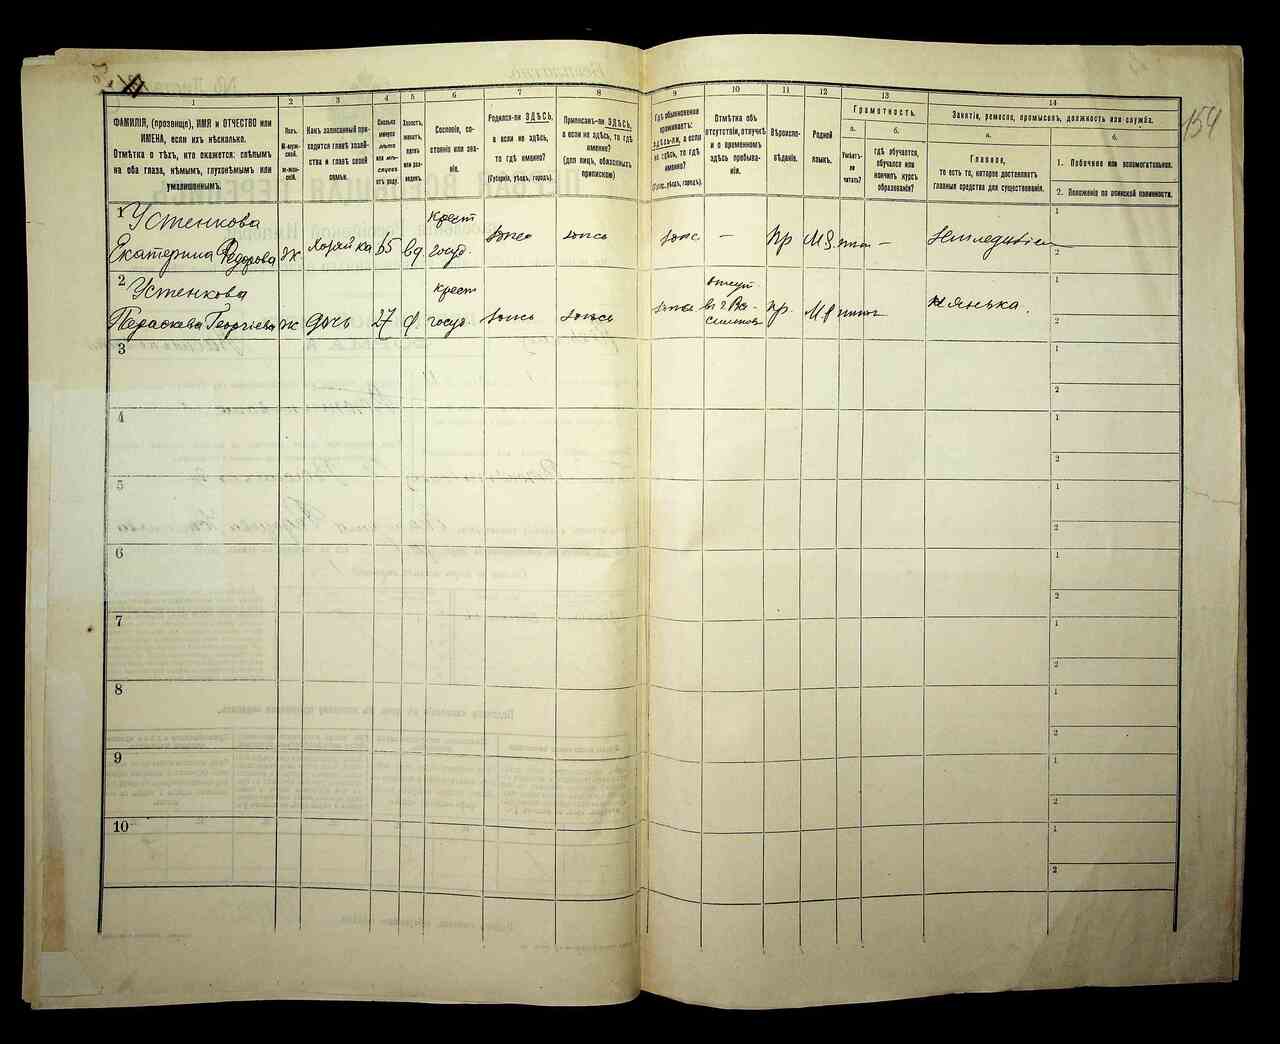 154
1 2 3 4 5 6 7 8 9 10 11 12 13 14
ФАМИЛІЯ, (прозвище), ИМЯ и ОТЧЕСТВО или
ИМЕНА, если ихъ нѣсколько.
Отмѣтка о тѣхъ, кто окажется: слѣпымъ
на оба глаза, нѣмымъ, глухонѣмымъ или
умалишеннымъ.
Полъ.
М-муж-
ской.
Ж-жен-
скій.
Какъ записанный при-
ходится главѣ хозяй-
ства и главѣ своей
семьи.
Сколько
минуло
лѣтъ
или мѣ-
сяцевъ
отъ роду.
Холостъ,
женатъ,
вдовъ
или раз-
веденъ.
Сословіе, со-
стояніе или зва-
ніе.
Родился-ли ЗДѢСЬ,
а если не здѣсь,
то гдѣ именно?
(Губернія, уѣздъ, городъ).
Приписанъ-ли ЗДѢСЬ,
а если не здѣсь, то гдѣ
именно?
(для лицъ, обязанныхъ
припиской)
Гдѣ обыкновенно
проживаетъ:
здѣсь-ли, а если
не здѣсь, то гдѣ
именно?
(Губ., уѣздъ, городъ).
Отмѣтка объ
отсутствіи, отлучкѣ
и о временномъ
здѣсь пребыва-
ніи.
Вѣроиспо-
вѣданіе.
Родной
языкъ.
Грамотность.
а.
Умѣетъ-
ли
читать?
б.
гдѣ обучается,
обучался или
кончилъ курсъ
образованія?
Занятіе, ремесло, промыселъ, должность или служба.
а.
Главное,
то есть то, которое доставляетъ
главныя средства для существованія.
б.
1. Побочное или вспомогательное.
2. Положеніе по воинской повинности.
1 Устенкова
Екатерина Федорова ж хозяйка 65 вд. крест госуд. здесь здесь здесь — пр — Земледеліе 1
2
2 Устенкова
Параскева Георгіева ж дочь 27 крест госуд здесь здесь здесь пр. нянька. 1
2
3 1
2
4 1
2
5 1
2
6 1
2
7 1
2
8 1
2
9 1
2
10 1
2